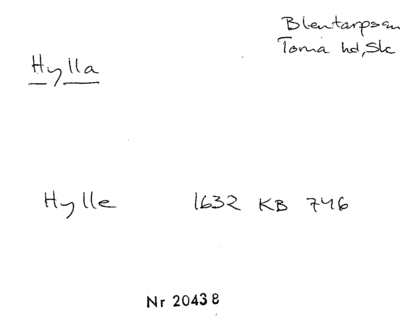 Blentarps sn
Torna hd, Sk
Hylla
Hylle 1632 KB 746
Nr 20438